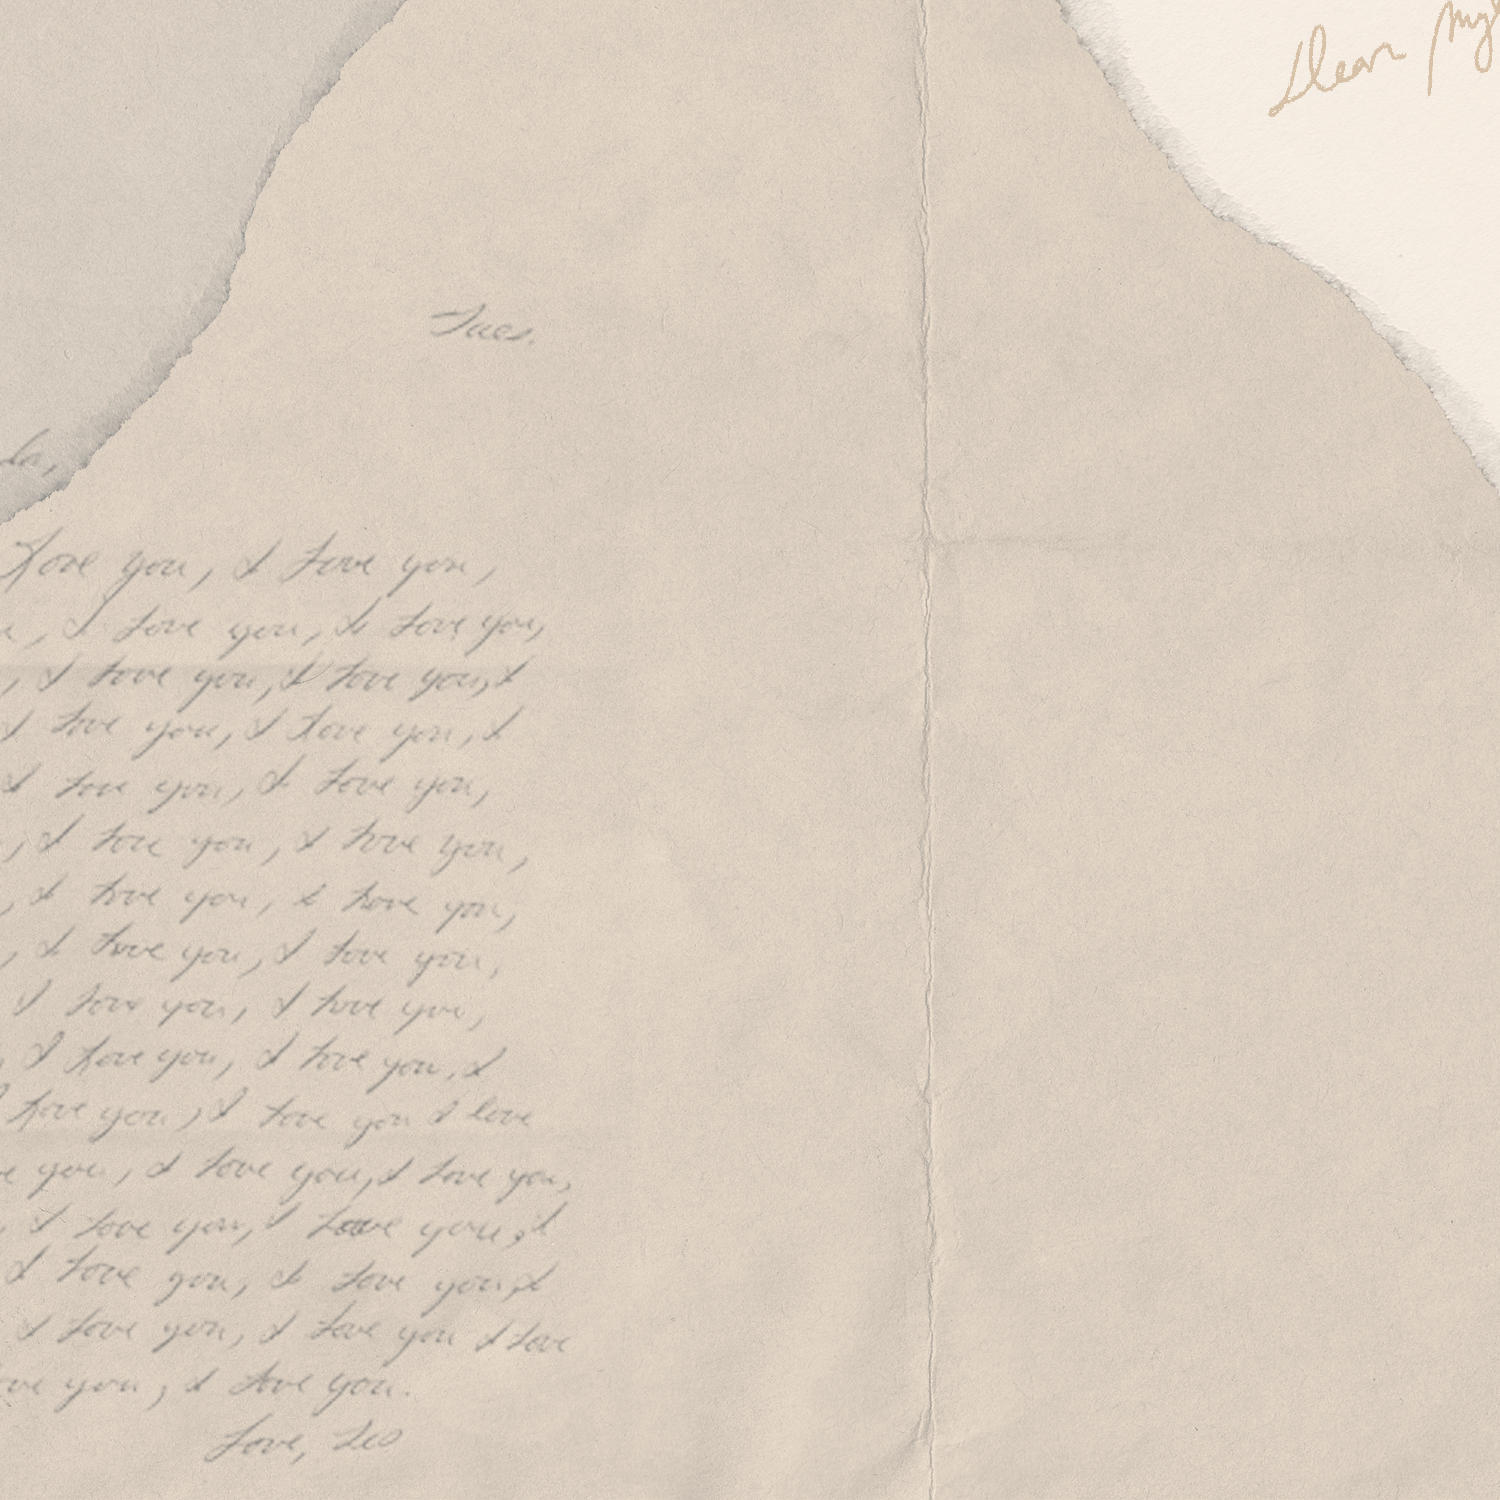 Dear My
Tues.
da,
Love you, I Love you,
, I love you, I love you,
, I love you, I love you, I
I love you, I love you, I
I love you, I love you,
, I love you, I love you,
, I love you, I love you,
, I love you, I love you,
I love you, I love you,
, I love you, I love you, I
Love you, I love you I love
you, I love you, I love you,
, I love you, I love you, I
I love you, I love you, I
I love you, I love you I love
you, I love you.
Love, Leo